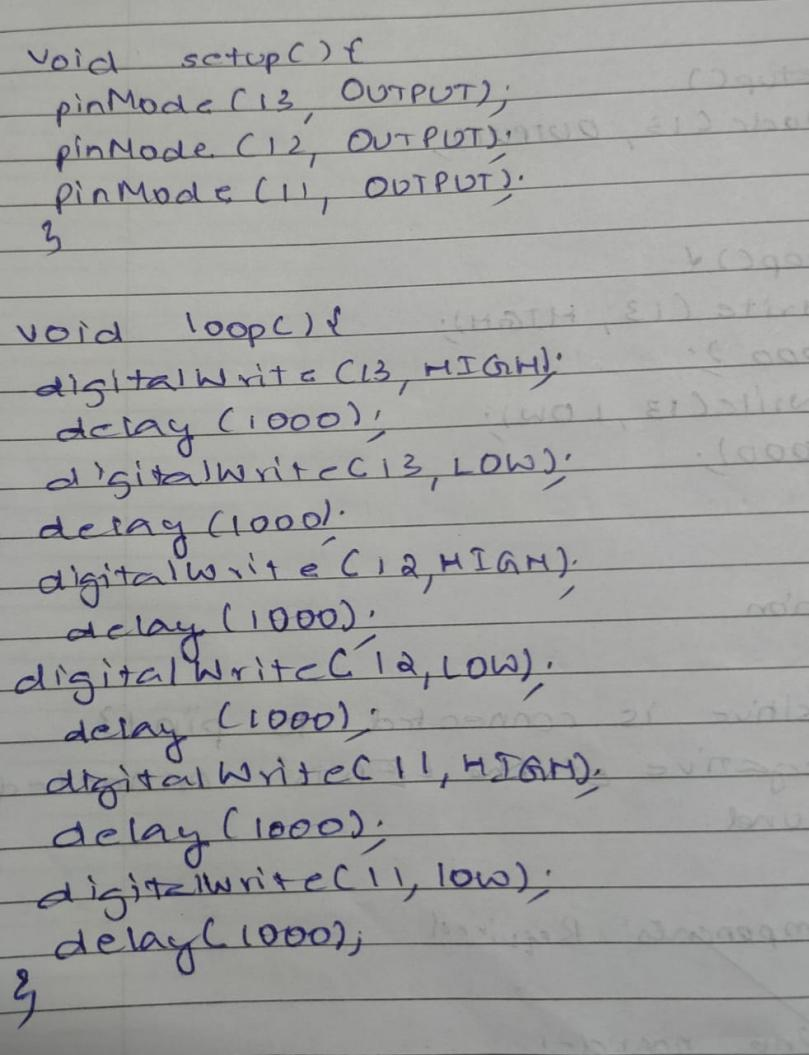 void setup() {
pinMode (13, OUTPUT);
pinMode (12, OUTPUT);
pinMode (11, OUTPUT);
}
void loop() {
digitalWrite (13, HIGH);
delay (1000);
digitalWrite (13, LOW);
delay (1000);
digitalWrite (12, HIGH);
delay (1000);
digitalWrite (12, LOW);
delay (1000);
digitalWrite (11, HIGH);
delay (1000);
digitalWrite (11, low);
delay (1000);
}